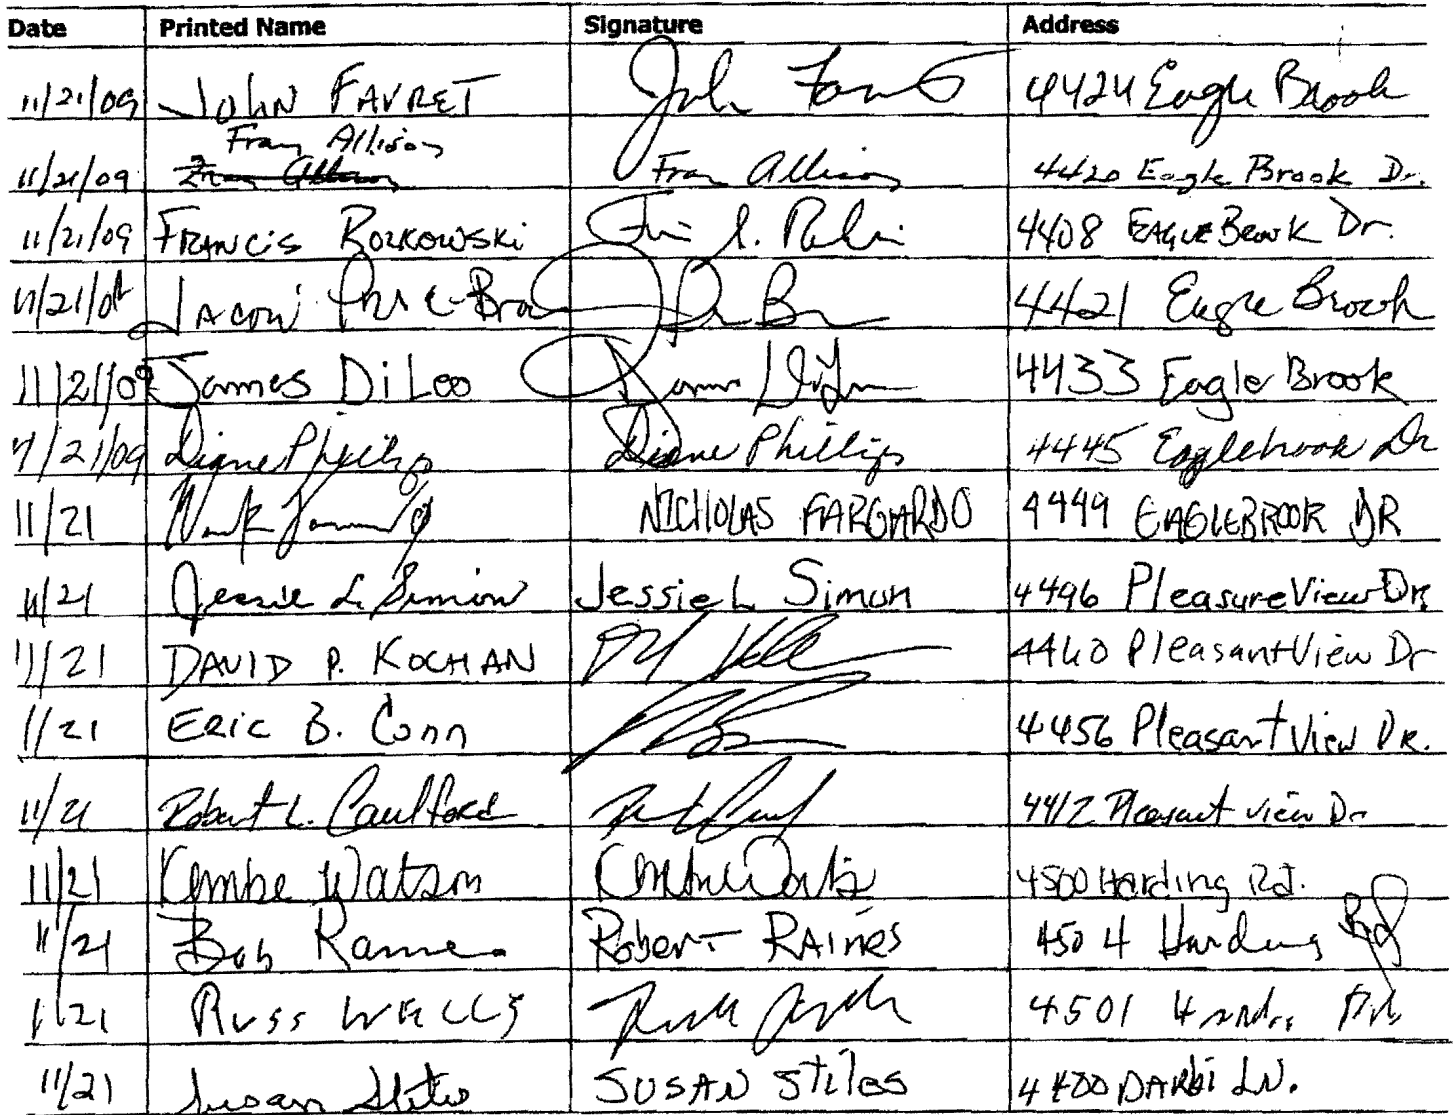 Date Printed Name Signature Address
11/21/09 JOHN FAVRET John 4424 Eagle Brook
Fran Allison
11/21/09 Fran Allison 4420 Eagle Brook Dr.
11/21/09 FRANCIS ROZKOWSKI 4408 EAGLE BROOK Dr.
11/21/09 4421 Eagle Brook
11/21/09 James DiLeo 4433 Eagle Brook
11/21/09 Diane Phillips Diane Phillips 4445 Eaglebrook Dr
11/21 NICHOLAS 4449 EAGLEBROOK DR
11/21 Jessie L. Simon Jessie L Simon 4496 PleasureView Dr
11/21 DAVID P. KOCHAN 4460 PleasantView Dr
11/21 ERIC B. Conn 4456 Pleasant View DR.
11/21 Robert L. 4412 Pleasant view Dr
11/21 Watson 4500 Harding Rd.
11/21 Bob Robert RAINES 4504 Harding Rd
11/21 RUSS WELLS 4501
11/21 Susan SUSAN Stiles 4400 DARBI LN.